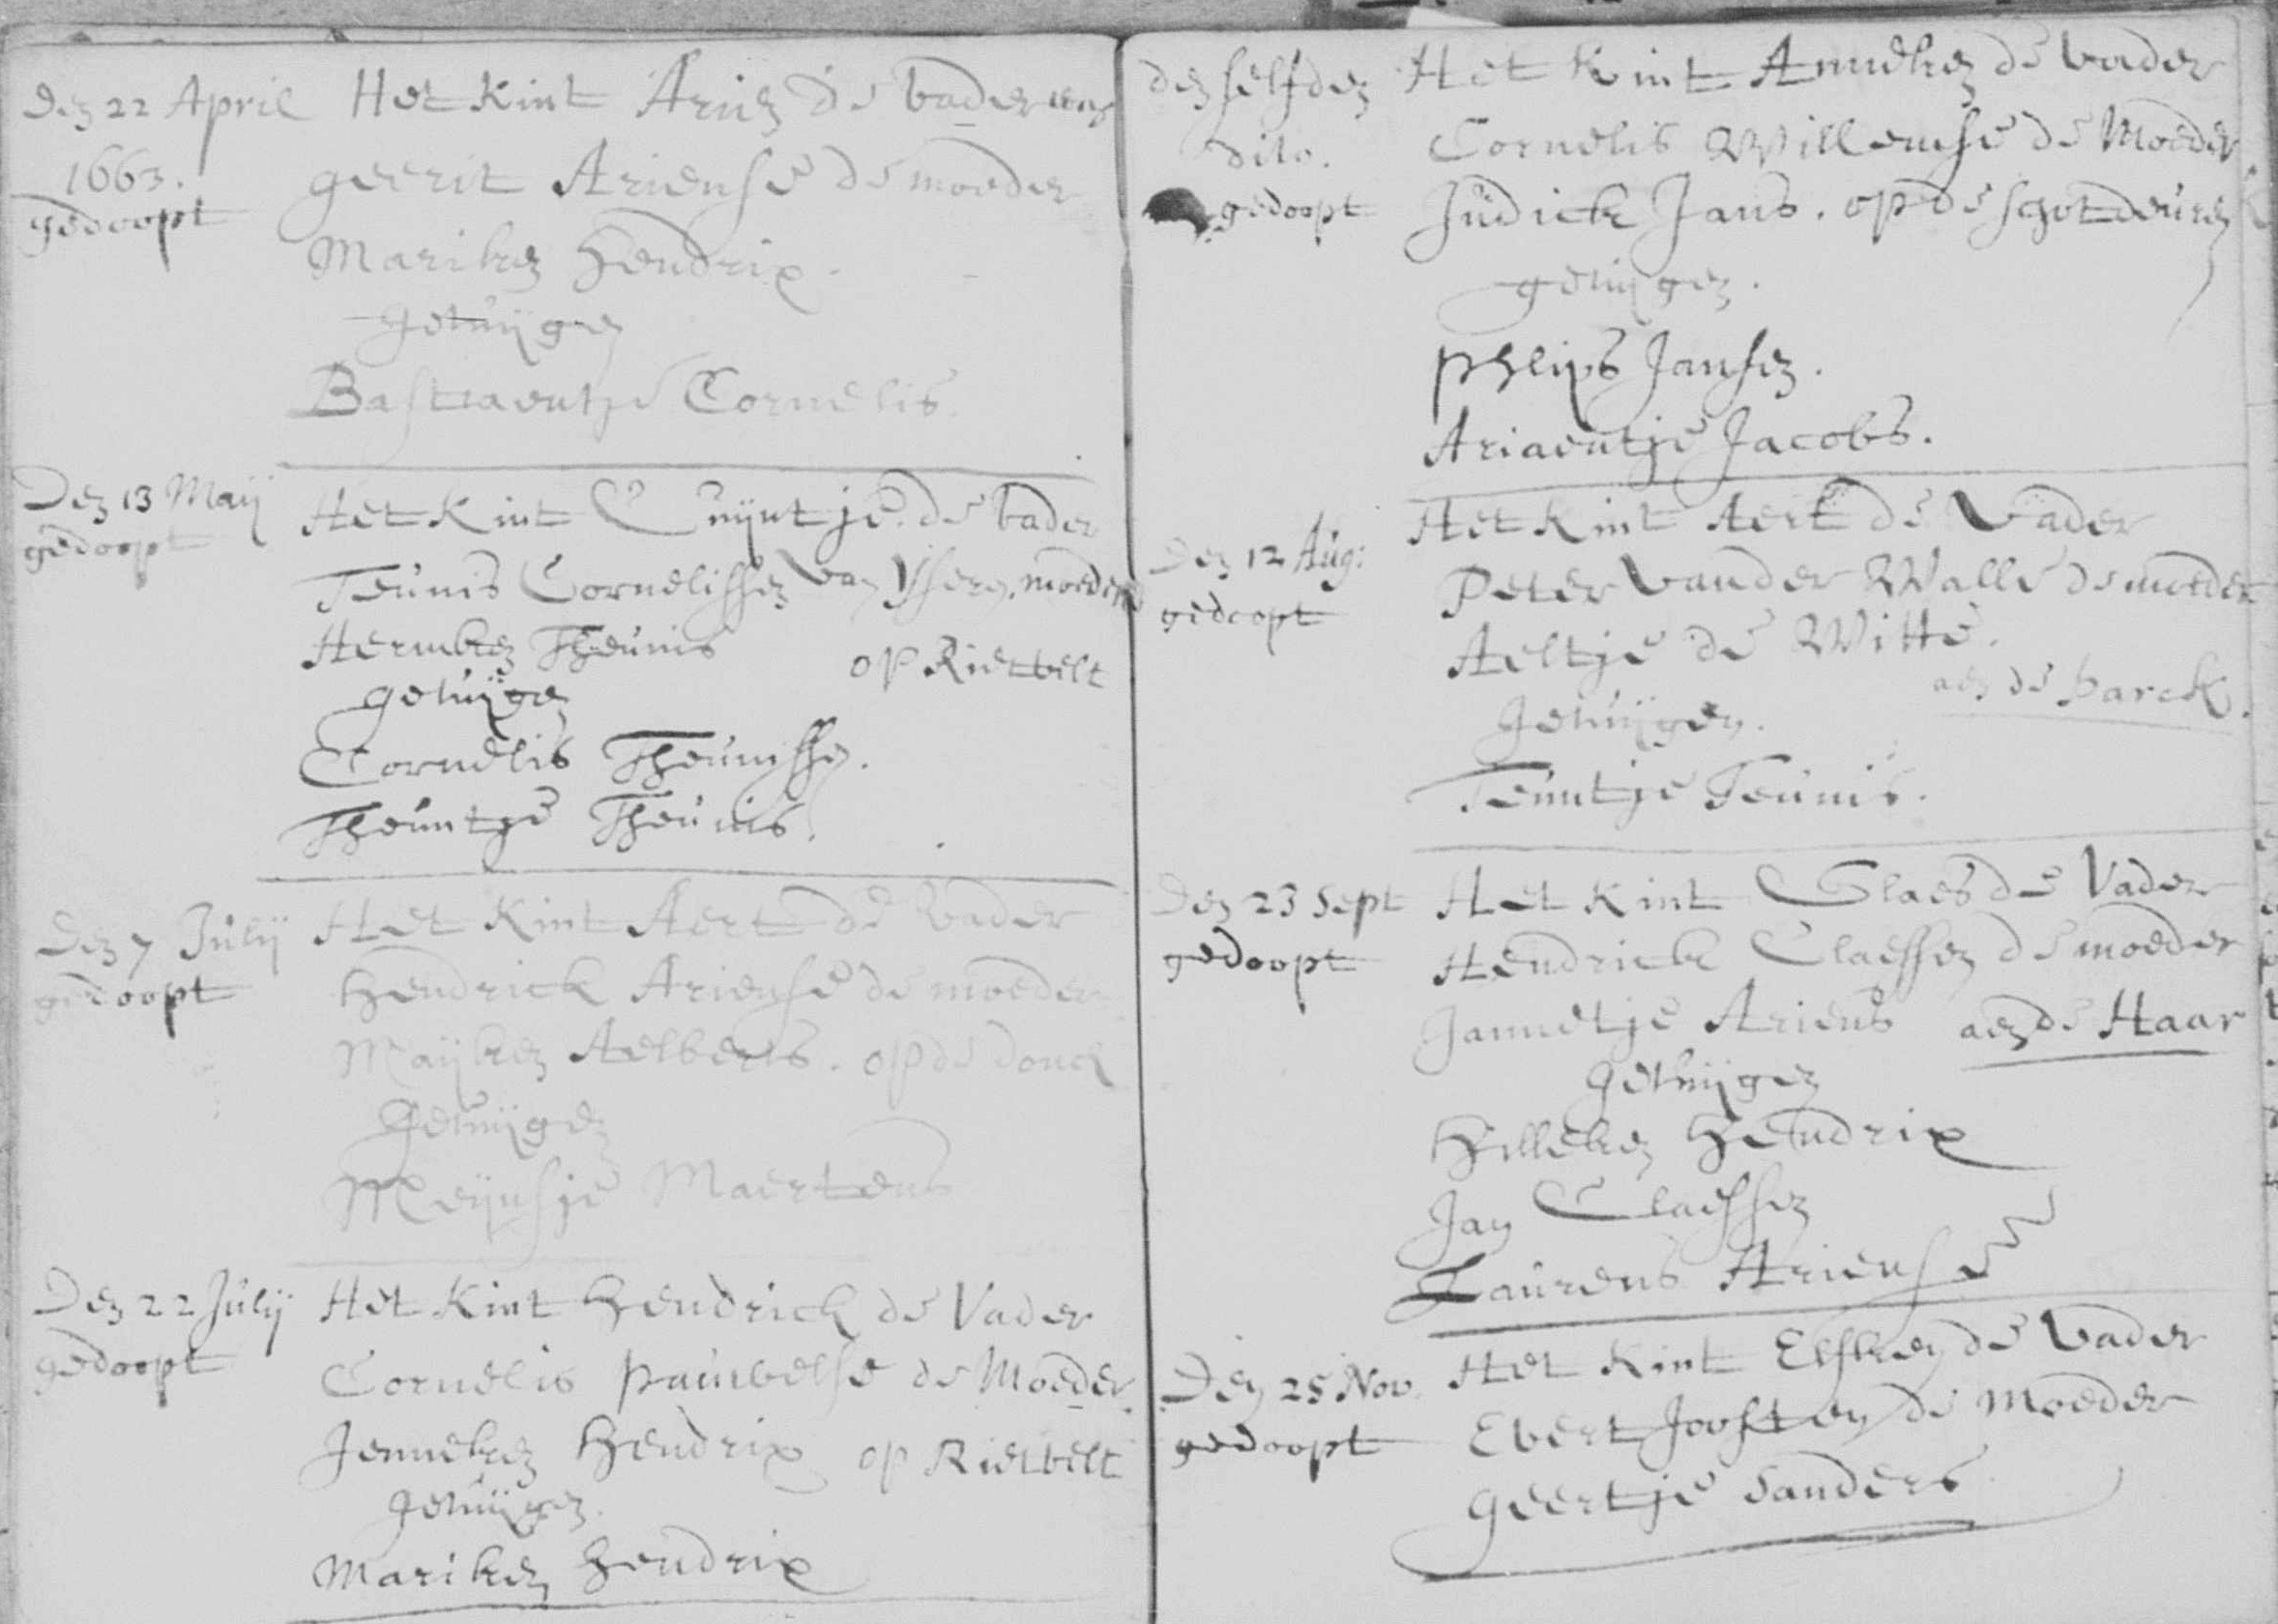 Den 22 April
1663.
gedoopt
Het Kint Arien de vader was
geerit Ariense de moeder
Mariken Hendrix.
Getuijgen
Bastiaentje Cornelis.
Den 13 Maij
gedoopt
Het Kint Cuijntje. de vader
Teunis Cornelissen van moeder
Hermken Theunis
op Rietvelt
getuijgen
Cornelis Theunissen.
Theuntje Theunis.
Den 7 Julij
gedoopt
Het Kint Aert de vader
Hendrick Ariense de moeder
Maijken Aelberts. op de donck
Getuijgen
Meijnsje Maertens
Den 22 Julij
gedoopt
Het Kint Hendrick de Vader
Cornelis pauwelse de Moeder.
Jenneken Hendrix op Rietvelt
Getuijgen.
Mariken Hendrix
den selfden
dito.
gedoopt
Het Kint Anneken de vader
Cornelis Willemse de Moeder
Judick Jans. op de schotdeuren
getuijgen.
Phlips Jansen.
Ariaentje Jacobs.
Den 12 Aug:
gedoopt
Het Kint Aert de Vader
Peter vander Walle de moeder
Aeltje de Witte.
aen de barck.
Getuijgen.
Teuntje Teunis.
Den 23 Sept
gedoopt
Het Kint Claes de Vader
Hendrick Claessen de moeder
Jannetje Ariens aen de Haar
Getuijgen
Hilleken Hendrix
Jan Claessen
Laurens Ariense
Den 25 Nov.
gedoopt
Het Kint Elsken de vader
Evert Joosten de Moeder
geertje Sanders